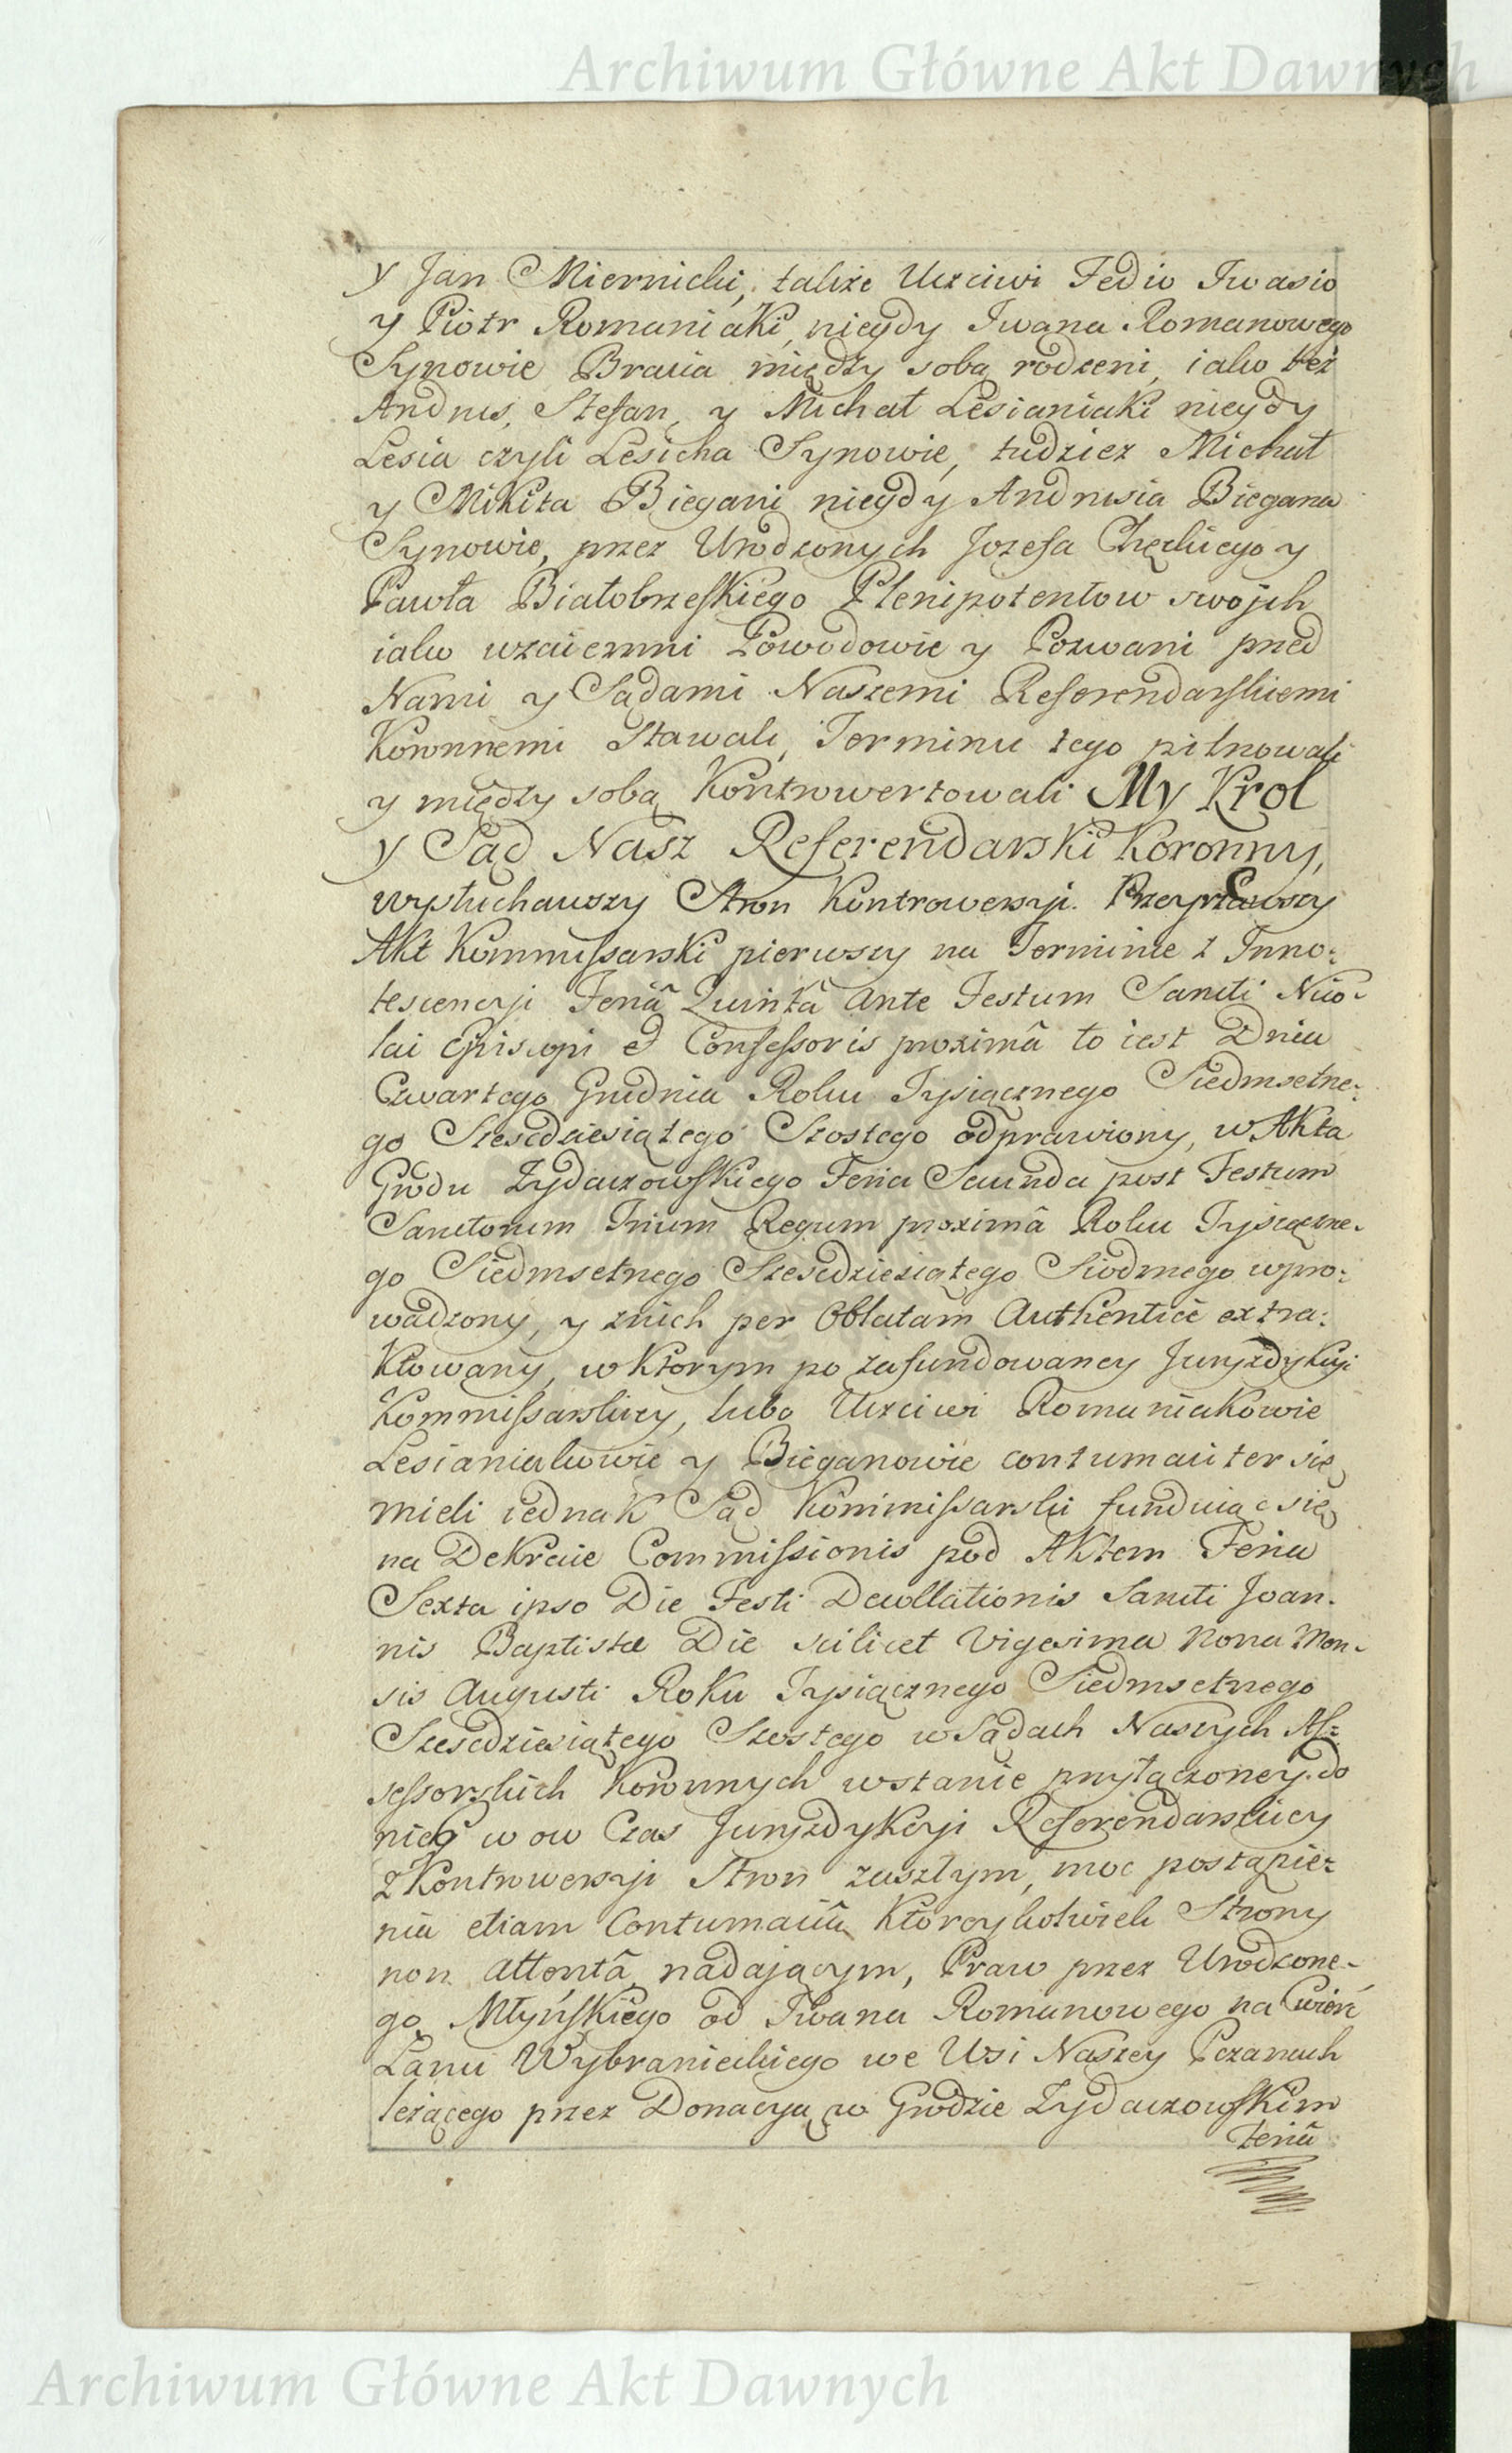 Archiwum Główne Akt Dawnych
y Jan Miernicki, także Uczciwi Fediо Iwasio
y Piotr Romaniaki, niegdy Iwana Romanowego
Synowie Bracia między sobą rodzeni, iako też
Andrus, Stefan, y Michał Lesianiaki niegdy
Lesia czyli Lesicha Synowie, tudziez Michał
y Mikita Biegani niegdy Andrusia Biegana
Synowie, przez Urodzonych Jozefa Chęckiego y
Pawła Białobrzeskiego Plenipotentow swojch
iako wzaiemni Powodowie y Pozwani przed
Nami y Sądami Naszemi Referendarskiemi
Koronnemi Stawali, Terminu tego pilnowali
y między sobą Kontrowertowali My Krol
y Sąd Nasz Referendarski Koronny,
wysłuchawszy Stron Kontrowersyi. Przeyrzawszy
Akt Kommissarski pierwszy na Terminie z Inno-
tescencyi Feriâ Quintâ ante Festum Sancti Nico-
lai Episcopi et Confessoris proximâ to iest Dnia
Czwartego Grudnia Roku Tysiącznego Siedmsetne-
go Szescdziesiątego Szostego odprawiony, w Akta
Grodu Zydaczowskiego Feria Secunda post Festum
Sanctorum Trium Regum proximâ Roku Tysiączne-
go Siedmsetnego Szescdziesiątego Siodmego wpro-
wadzony, y znich per Oblatam Authenticè extra-
ktowany, w ktorym po zafundowaney Juryzdykcyi
Kommissarskiey, lubo Uczciwi Romaniakowie
Lesianiakowie y Bieganowie contumaciter się
mieli iednak Sąd Kommissarski funduiąc się
na Dekrecie Commissionis pod Aktem Feria
Sexta ipso Die Festi Decollationis Sancti Joan-
nis Baptistæ Die scilicet Vigesima Nona Men-
sis Augusti Roku Tysiącznego Siedmsetnego
Szescdziesiątego Szostego w Sądach Naszych As-
sessorskich Koronnych wstanie przyłączoney do
nieg w ow Czas Juryzdykcyi Referendarskiey
z Kontrowersyi Stron zaszłym, moc postąpie-
nia etiam Contumaciâ Ktoreykolwiek Strony
non attentâ nadającym, Praw przez Urodzone-
go Młyńskiego od Iwana Romanowego na Cwierć
Łanu Wybranieckiego we Wsi Naszey Pczanach
leżącego przez Donacyą w Grodzie Zydaczowskim
Feriâ
Archiwum Główne Akt Dawnych